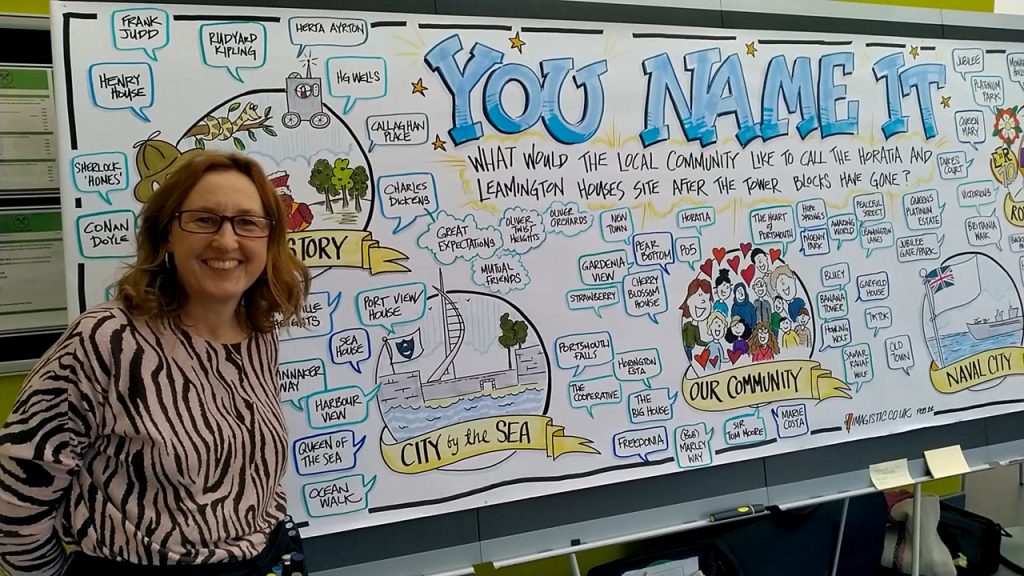 FRANK
JUDD
RUDYARD
KIPLING
HERTA AYRTON
HENRY
HOUSE
HG WELLS
CALLAGHAN
PLACE
SHERLOCK
'HOMES'
CONAN
DOYLE
CHARLES
DICKENS
STORY
YOU NAME IT
WHAT WOULD THE LOCAL COMMUNITY LIKE TO CALL THE HORATIA AND
LEAMINGTON HOUSES SITE AFTER THE TOWER BLOCKS HAVE GONE?
GREAT
EXPECTATIONS
OLIVER
TWIST
HEIGHTS
OLIVER
ORCHARDS
MUTUAL
FRIENDS
PORT VIEW
HOUSE
SEA
HOUSE
HARBOUR
VIEW
QUEEN OF
THE SEA
OCEAN
WALK
CITY by the SEA
NON
TOWN
HORATIA
PEAR
BOTTOM
PO5
GARDENIA
VIEW
STRAWBERRY
CHERRY
BLOSSOM
HOUSE
PORTSMOUTH
FALLS
THE
COOPERATIVE
THE
BIG HOUSE
FREEDONIA
(BOB)
MARLEY
WAY
SIR
TOM MOORE
MARIE
COSTA
OUR COMMUNITY
THE HEART
OF
PORTSMOUTH
HOPE
SPRINGS
PHOENIX
PARK
AMAZING
WORLD
PEACEFUL
STREET
LEAMINGTON
LANES
BLUEY
GARFIELD
HOUSE
BANANA
TOWER
TIKTOK
HOWLING
WOLF
OLD
TOWN
JUBILEE
PLATINUM
PARK
QUEEN
MARY
DUKES
COURT
VICTORIOUS
QUEENS
PLATINUM
ESTATE
BRITANIA
JUBILEE
GATE/PARK
NAVAL CITY
IMAGISTIC.CO.UK